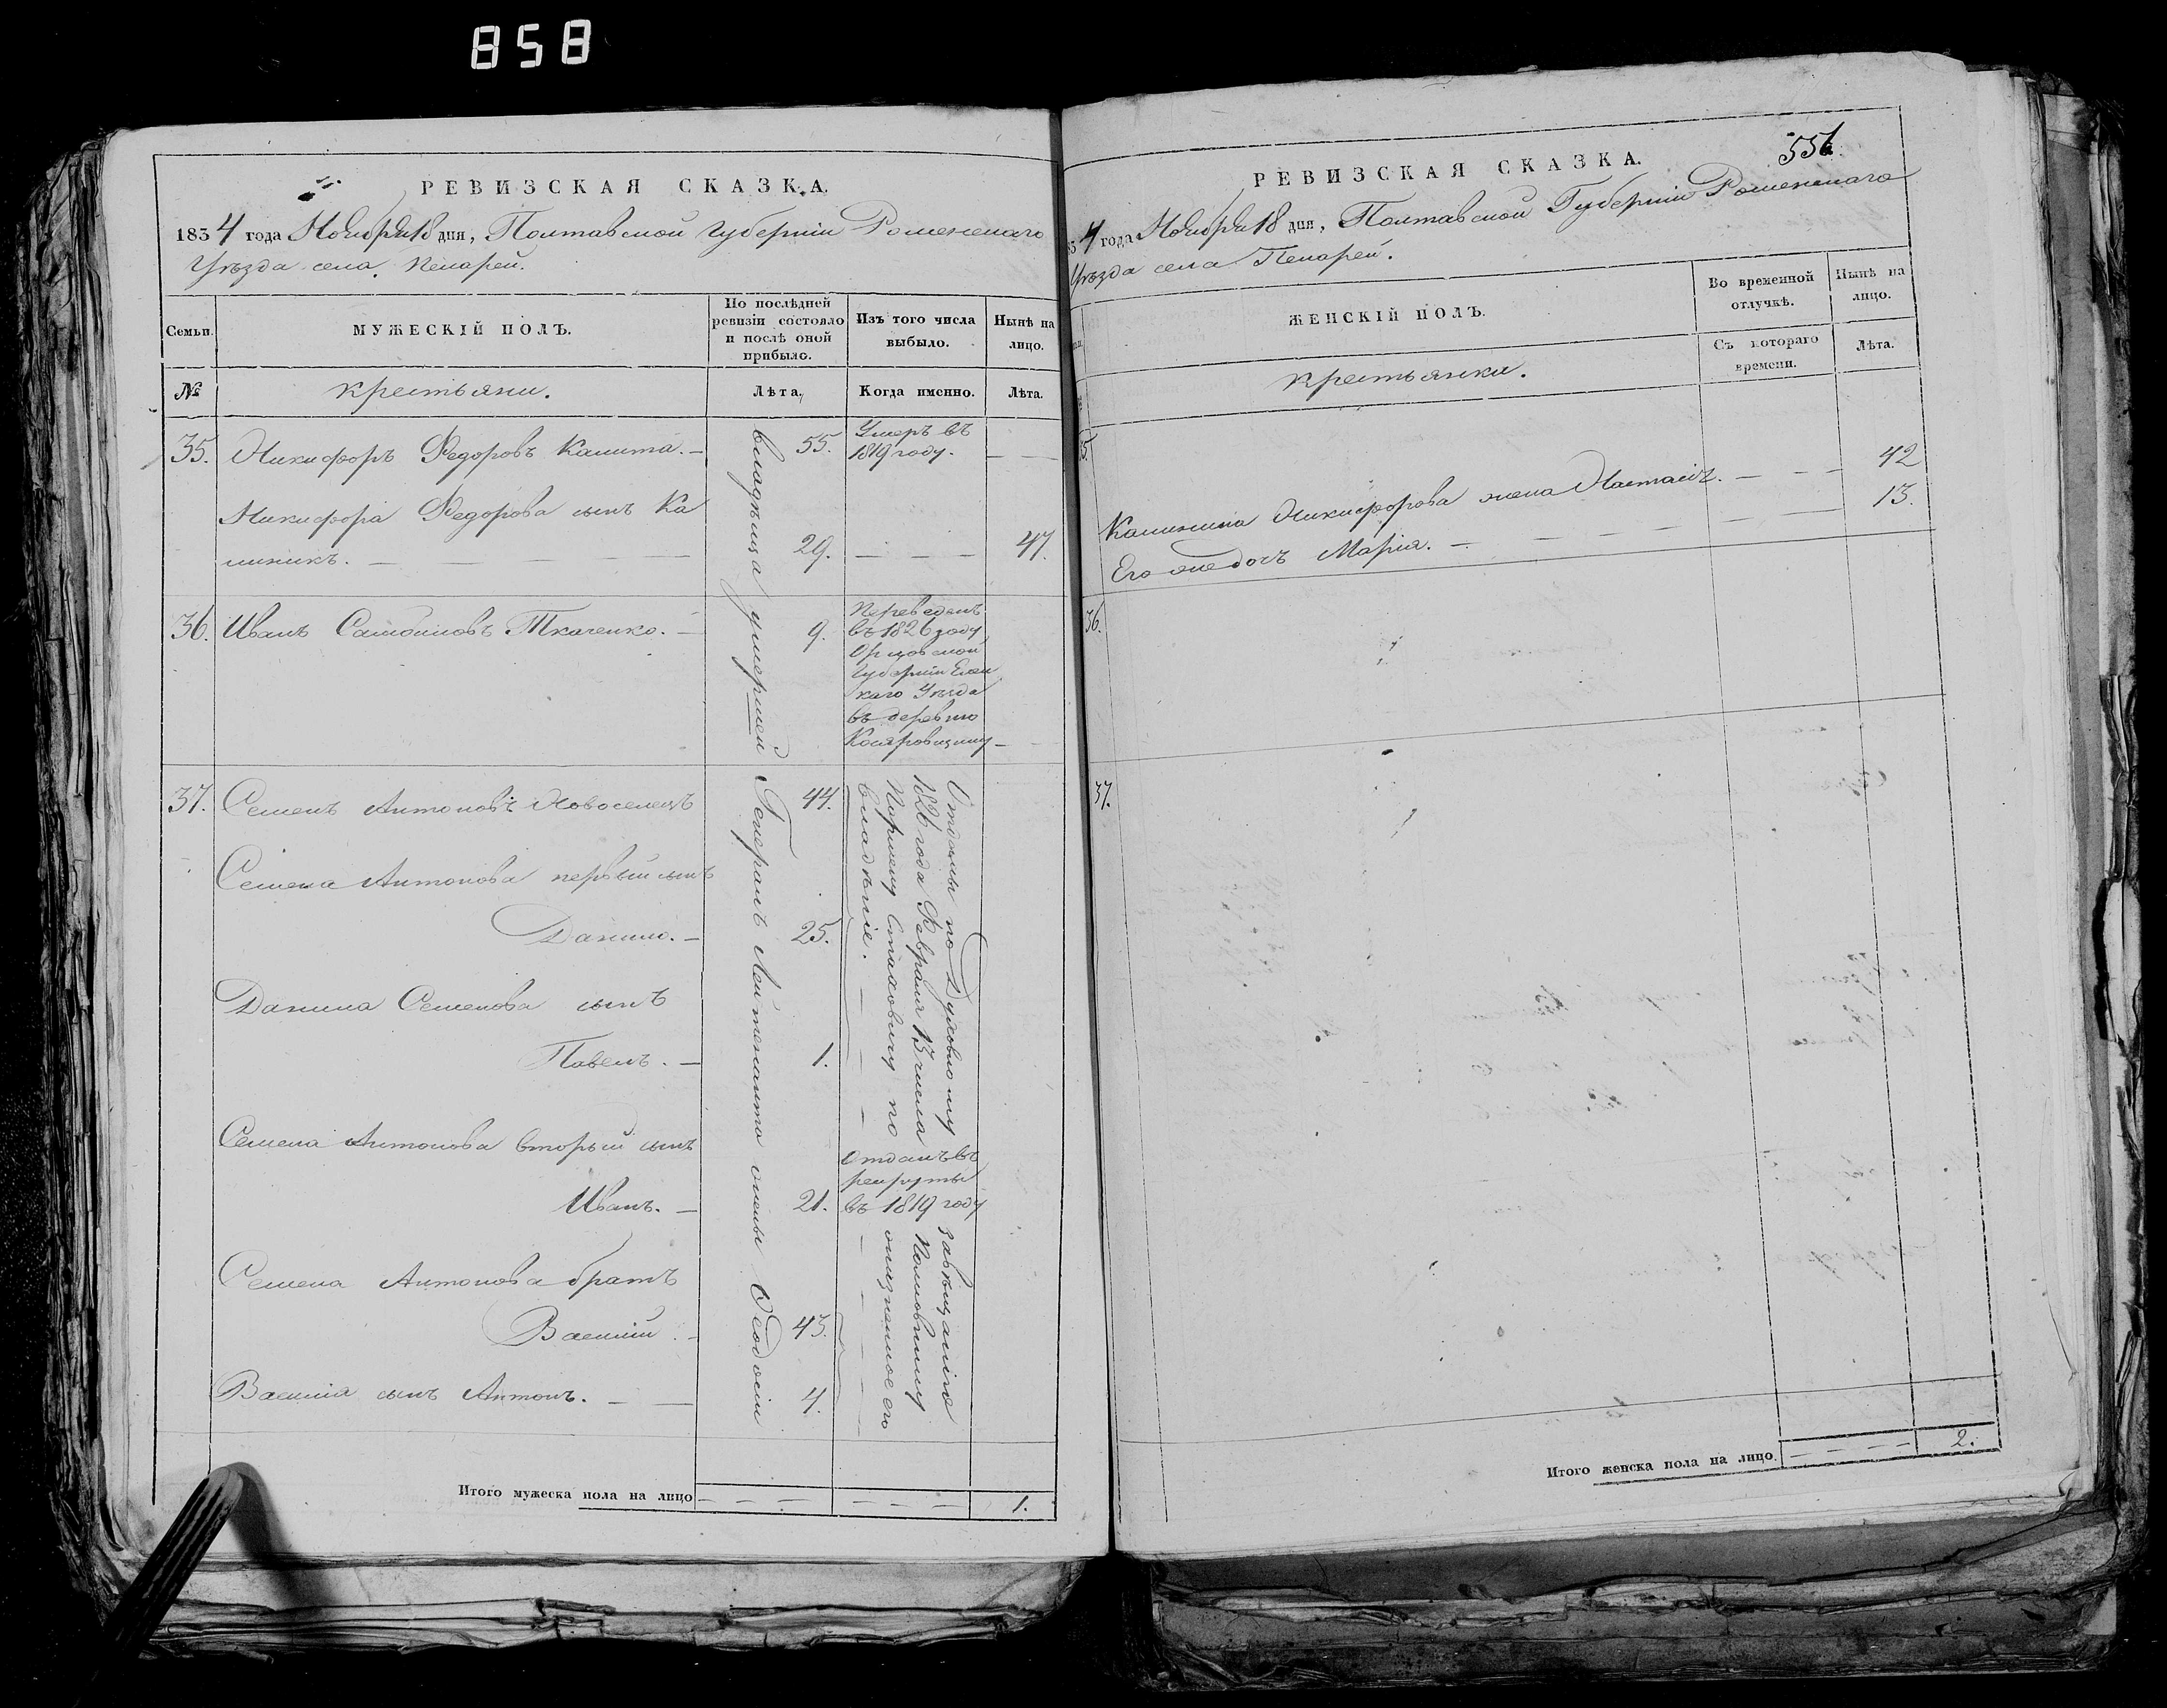 858
РЕВИЗСКАЯ СКАЗКА.
1834 года Ноября 18 дня, Полтавской Губерніи Роменскаго
Уѣзда села Пекарей.
Семьи.
МУЖЕСКІЙ ПОЛЪ.
По послѣдней ревизіи состояло и послѣ оной прибыло.
Изъ того числа выбыло.
Нынѣ на лицо.
№
крестьяни.
Лѣта.
Когда именно.
Лѣта.
35. Никифоръ Федоровъ Калита. — 55. Умеръ въ
1819 году. — —
Никифора Федорова сынъ Ка
линикъ. — — — — 29. — — — 47.
36. Иванъ Самойловъ Ткаченко. — 9. Переведенъ
въ 1826 году
Орловской
Губерніи Елец
каго Уѣзда
въ деревню
37. Семенъ Антоновъ Новоселецъ 44.
Семена Антонова первый сынъ
Данило. — 25.
Данила Семенова сынъ
Павелъ. — 1.
Семена Антонова вторый сынъ
Иванъ. — 21.
Отданъ въ
рекруты
въ 1819 году
Семена Антонова братъ
Василій. 43.
Василія сынъ Антонъ. — — 4.
владѣлица умершей Генералъ Лейтенанта жены Ѳеодосіи
Отданы по Духовному завѣщанію
1826 года Февраля 13 числа Полковнику
Стаховичу по
владѣніе. — — —
Итого мужеска пола на лицо — — — — — — 1.
РЕВИЗСКАЯ СКАЗКА.
556.
4 года Ноября 18 дня, Полтавской Губерніи Роменскаго
Уѣзда села Пекарей.
ЖЕНСКІЙ ПОЛЪ.
Во временной отлучкѣ.
Нынѣ на лицо.
Съ котораго времени.
Лѣта.
крестьянки.
35.
Калиника Никифорова жена Настасія. — — — 42
Его же дочь Марія. — — — — — 13.
36.
37.
Итого женска пола на лицо. — — — — 2.